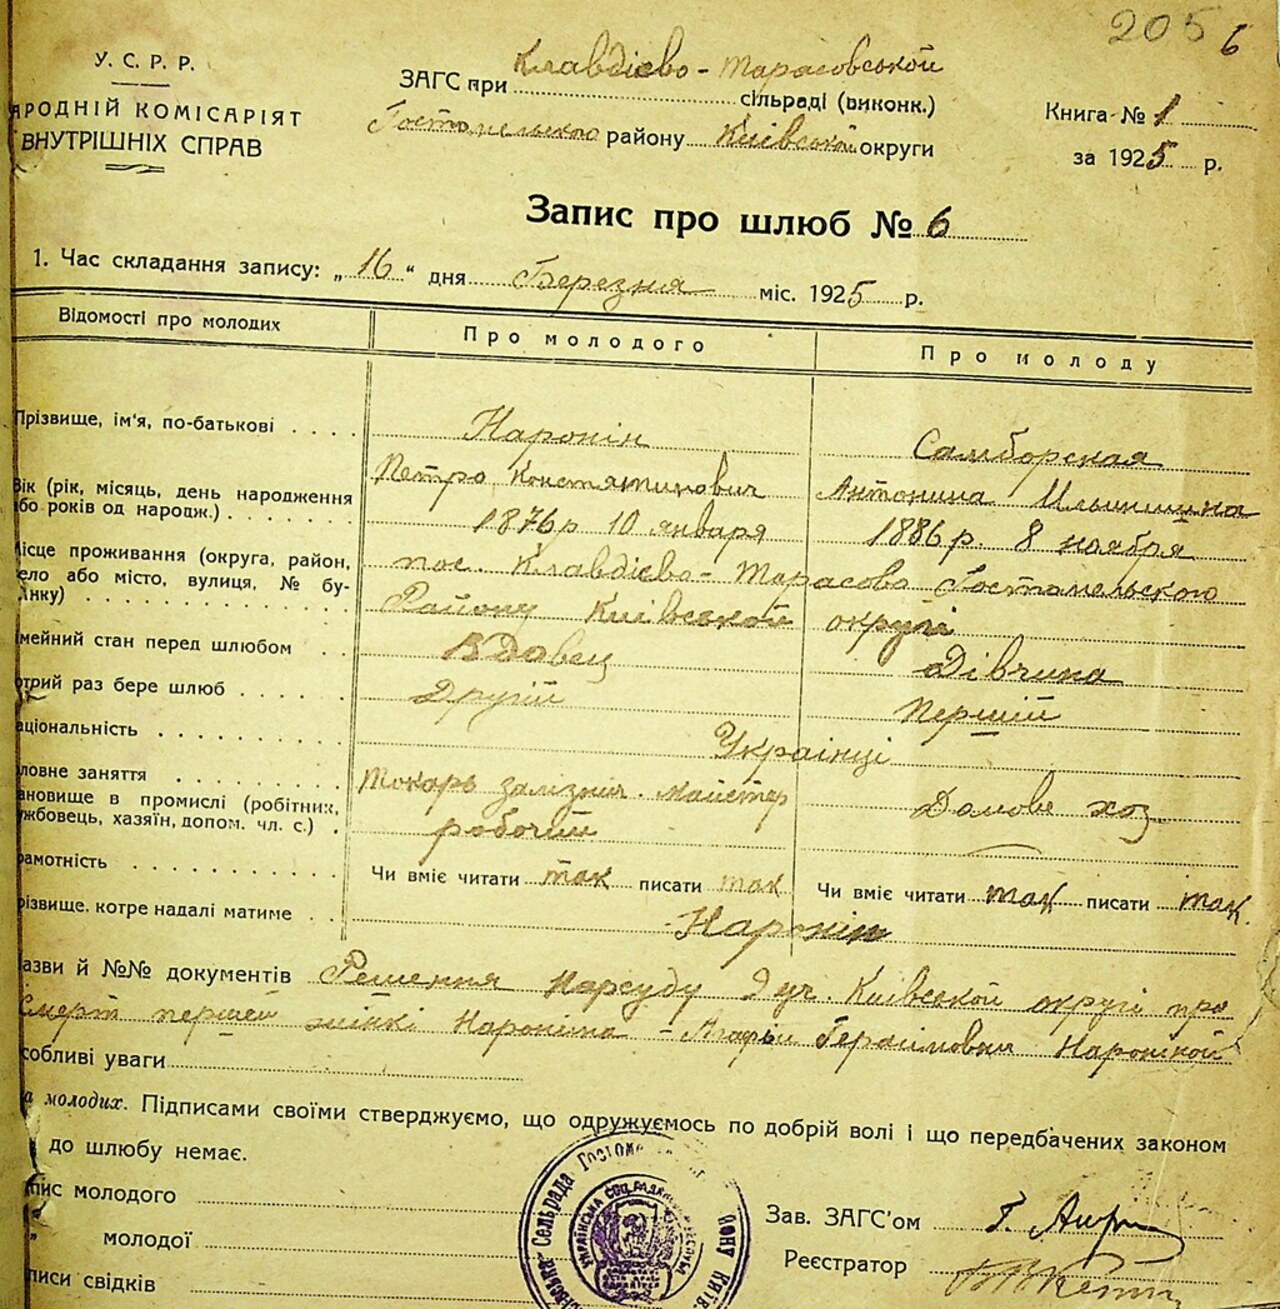 205 6
У. С. Р. Р.
АРОДНІЙ КОМІСАРІЯТ
ВНУТРІШНІХ СПРАВ
ЗАГС при Клавдієво-Тарасовської сільраді (виконк.)
Гостомельского району Київської округи
Книга № 1
за 1925 р.
Запис про шлюб № 6
1. Час складання запису: „16“ дня Березня міс. 1925 р.
Відомості про молодих
Про молодого
Про молоду
Прізвище, ім'я, по-батькові
Наронін
Самборская
Петро Константинович
Антонина Ильинишна
Вік (рік, місяць, день народження
або років од народж.)
1876 р 10 января
1886 р. 8 ноября
місце проживання (округа, район,
село або місто, вулиця, № бу-
динку)
пос. Клавдієво-Тарасово Гостомельского
Району Київської округі
мейний стан перед шлюбом
Вдовец
Дівчина
отрий раз бере шлюб
Другій
Першій
аціональність
Українці
ловне заняття
Токарь залізнич. майстер
Домове хоз.
ановище в промислі (робітник,
жбовець, хазяїн, допом. чл. с.)
робочий
рамотність
Чи вміє читати так писати так
Чи вміє читати так писати так
різвище, котре надалі матиме
Наронін
азви й №№ документів Решення Нарсуду 9 уч. Київської округі про
Смерт першей жінкі Нароніна - Агафьи Герасімовни Нароніной
собливі уваги
а молодих. Підписами своїми стверджуємо, що одружуємось по добрій волі і що передбачених законом
до шлюбу немає.
пис молодого
" молодої
писи свідків
Зав. ЗАГС'ом
Реєстратор
Сельрада
УКРАЇНСЬКА СОЦ. РАДЯН